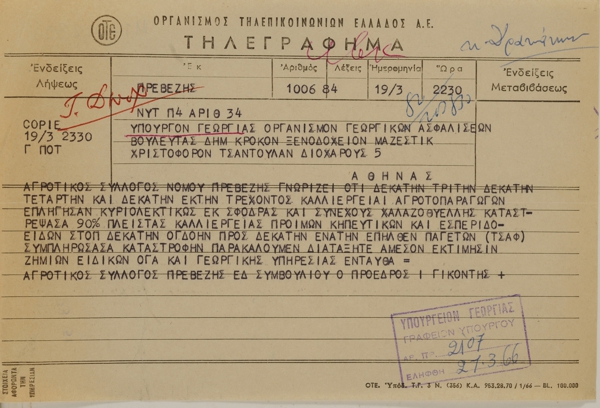 ΟΡΓΑΝΙΣΜΟΣ ΤΗΛΕΠΙΚΟΙΝΩΝΙΩΝ ΕΛΛΑΔΟΣ Α.Ε.
ΟΤΕ
ΤΗΛΕΓΡΑΦΗΜΑ
Ἐνδείξεις Λήψεως
Ἐκ ΠΡΕΒΕΖΗΣ
Ἀριθμός 1006
Λέξεις 84
Ἡμερομηνία 19/3
Ὥρα 2230
Ἐνδείξεις Μεταδιβάσεως
ΝΥΤ Π4 ΑΡΙΘ 34
COPIE
19/3 2330
Γ ΠΟΤ
ΥΠΟΥΡΓΟΝ ΓΕΩΡΓΙΑΣ ΟΡΓΑΝΙΣΜΟΝ ΓΕΩΡΓΙΚΩΝ ΑΣΦΑΛΙΣΕΩΝ
ΒΟΥΛΕΥΤΑΣ ΔΗΜ ΚΡΟΚΟΝ ΞΕΝΟΔΟΧΕΙΟΝ ΜΑΖΕΣΤΙΚ
ΧΡΙΣΤΟΦΟΡΟΝ ΤΣΑΝΤΟΥΛΑΝ ΔΙΟΧΑΡΟΥΣ 5
ΑΘΗΝΑΣ
ΑΓΡΟΤΙΚΟΣ ΣΥΛΛΟΓΟΣ ΝΟΜΟΥ ΠΡΕΒΕΖΗΣ ΓΝΩΡΙΖΕΙ ΟΤΙ ΔΕΚΑΤΗΝ ΤΡΙΤΗΝ ΔΕΚΑΤΗΝ
ΤΕΤΑΡΤΗΝ ΚΑΙ ΔΕΚΑΤΗΝ ΕΚΤΗΝ ΤΡΕΧΟΝΤΟΣ ΚΑΛΛΙΕΡΓΕΙΑΙ ΑΓΡΟΤΟΠΑΡΑΓΩΓΩΝ
ΕΠΛΗΓΗΣΑΝ ΚΥΡΙΟΛΕΚΤΙΚΩΣ ΕΚ ΣΦΟΔΡΑΣ ΚΑΙ ΣΥΝΕΧΟΥΣ ΧΑΛΑΖΟΘΥΕΛΛΗΣ ΚΑΤΑΣΤ-
ΡΕΨΑΣΑ 90% ΠΛΕΙΣΤΑΣ ΚΑΛΛΙΕΡΓΕΙΑΣ ΠΡΟΙΜΩΝ ΚΗΠΕΥΤΙΚΩΝ ΚΑΙ ΕΣΠΕΡΙΔΟ-
ΕΙΔΩΝ ΣΤΟΠ ΔΕΚΑΤΗΝ ΟΓΔΟΗΝ ΠΡΟΣ ΔΕΚΑΤΗΝ ΕΝΑΤΗΝ ΕΠΗΛΘΕΝ ΠΑΓΕΤΩΝ (ΤΣΑΦ)
ΣΥΜΠΛΗΡΩΣΑΣΑ ΚΑΤΑΣΤΡΟΦΗΝ ΠΑΡΑΚΑΛΟΥΜΕΝ ΔΙΑΤΑΞΗΤΕ ΑΜΕΣΟΝ ΕΚΤΙΜΗΣΙΝ
ΖΗΜΙΩΝ ΕΙΔΙΚΩΝ ΟΓΑ ΚΑΙ ΓΕΩΡΓΙΚΗΣ ΥΠΗΡΕΣΙΑΣ ΕΝΤΑΥΘΑ =
ΑΓΡΟΤΙΚΟΣ ΣΥΛΛΟΓΟΣ ΠΡΕΒΕΖΗΣ ΕΔ ΣΥΜΒΟΥΛΙΟΥ Ο ΠΡΟΕΔΡΟΣ Ι ΓΙΚΟΝΤΗΣ +
ΥΠΟΥΡΓΕΙΟΝ ΓΕΩΡΓΙΑΣ
ΓΡΑΦΕΙΟΝ ΥΠΟΥΡΓΟΥ
ΑΡ. ΠΡ. 2107
ΕΛΗΦΘΗ 21.3.66
ΣΤΟΙΧΕΙΑ
ΑΦΟΡΩΝΤΑ
ΤΗΝ
ΥΠΗΡΕΣΙΑΝ